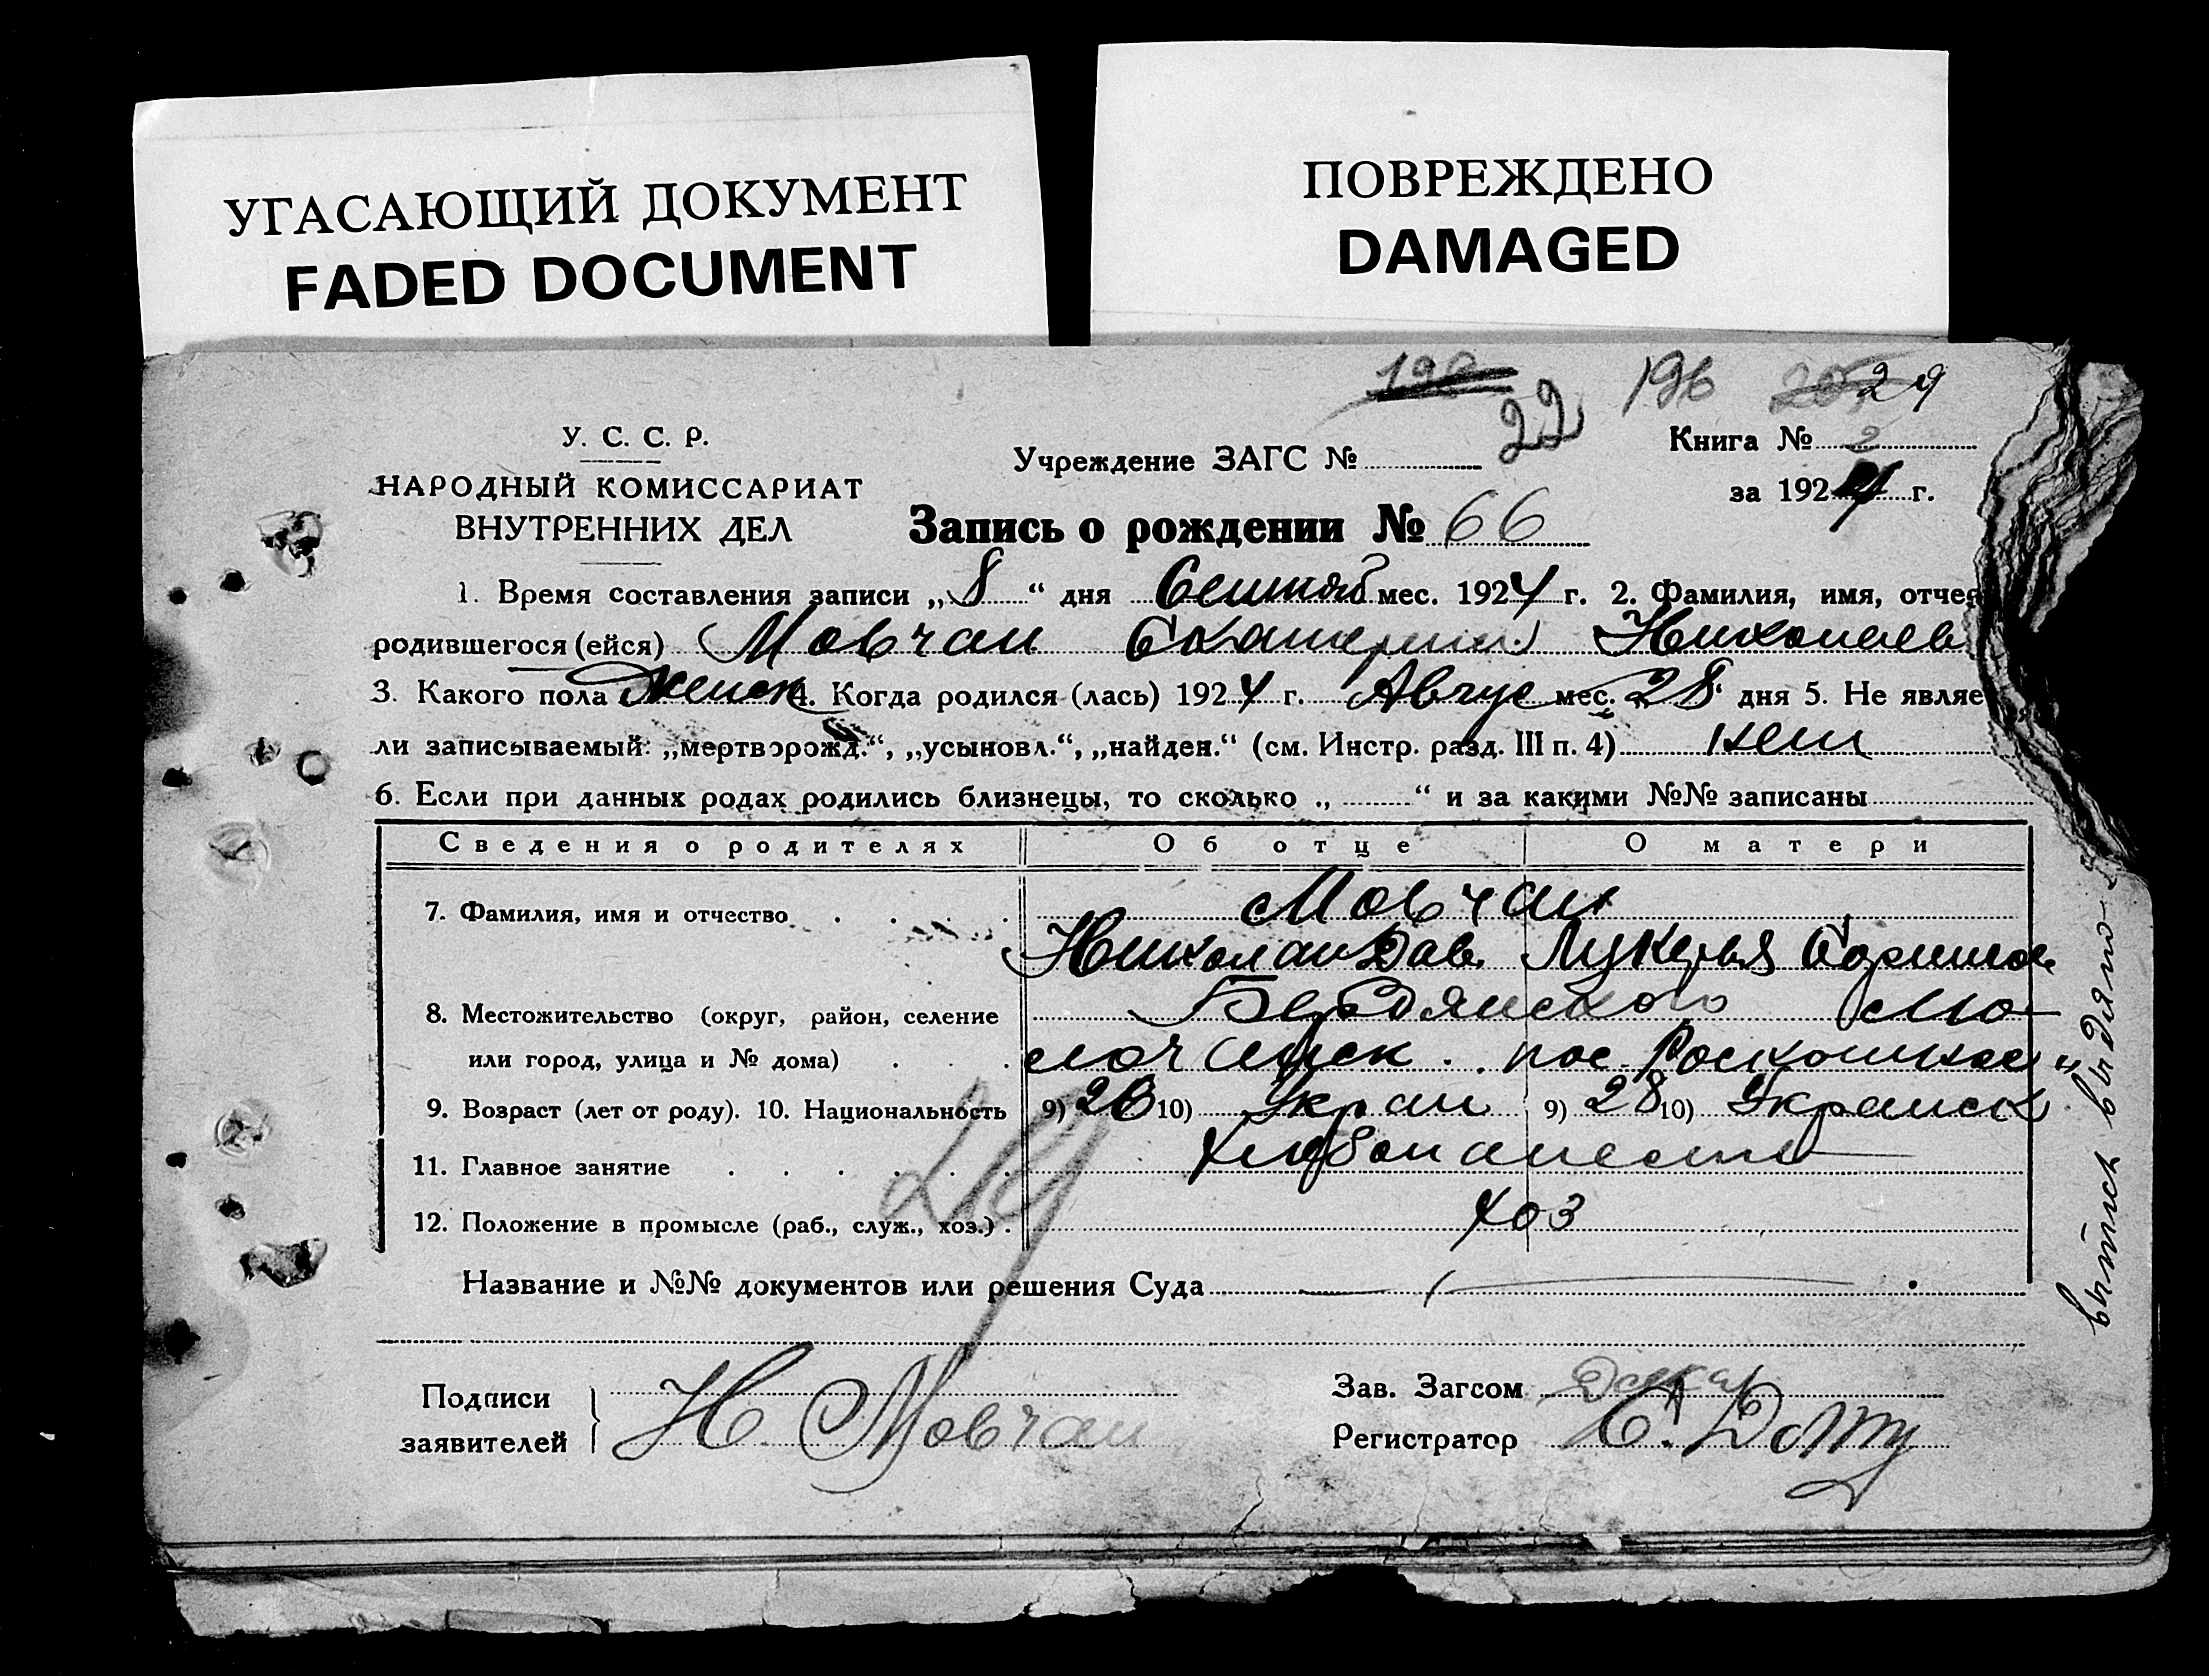 УГАСАЮЩИЙ ДОКУМЕНТ
FADED DOCUMENT
ПОВРЕЖДЕНО
DAMAGED
196 29
У. С. С. Р.
НАРОДНЫЙ КОМИССАРИАТ
ВНУТРЕННИХ ДЕЛ
Учреждение ЗАГС № 22
Книга № 2
за 1924 г.
Запись о рождении № 66
1. Время составления записи „8“ дня Сентяб мес. 1924 г. 2. Фамилия, имя, отчес
родившегося (ейся) Мовчан Екатерина Николаев
3. Какого пола женск 4. Когда родился (лась) 1924 г. Авгус мес. „28“ дня 5. Не являе
ли записываемый: „мертворожд.“, „усыновл.“, „найден.“ (см. Инстр. разд. III п. 4) нет
6. Если при данных родах родились близнецы, то сколько „ “ и за какими №№ записаны
Сведения о родителях Об отце О матери
7. Фамилия, имя и отчество Мовчан
Николай Дав. Лукерья
8. Местожительство (округ, район, селение Бердянского Мо-
или город, улица и № дома) лочанск. пос. Роскошное
9. Возраст (лет от роду). 10. Национальность 9) 28 10) Украин 9) 28 10) Украинск
11. Главное занятие Хлебопашест
12. Положение в промысле (раб., служ., хоз.) хоз
29
Название и №№ документов или решения Суда
Подписи
заявителей
Н. Мовчан
Зав. Загсом
Регистратор
выпись выдана